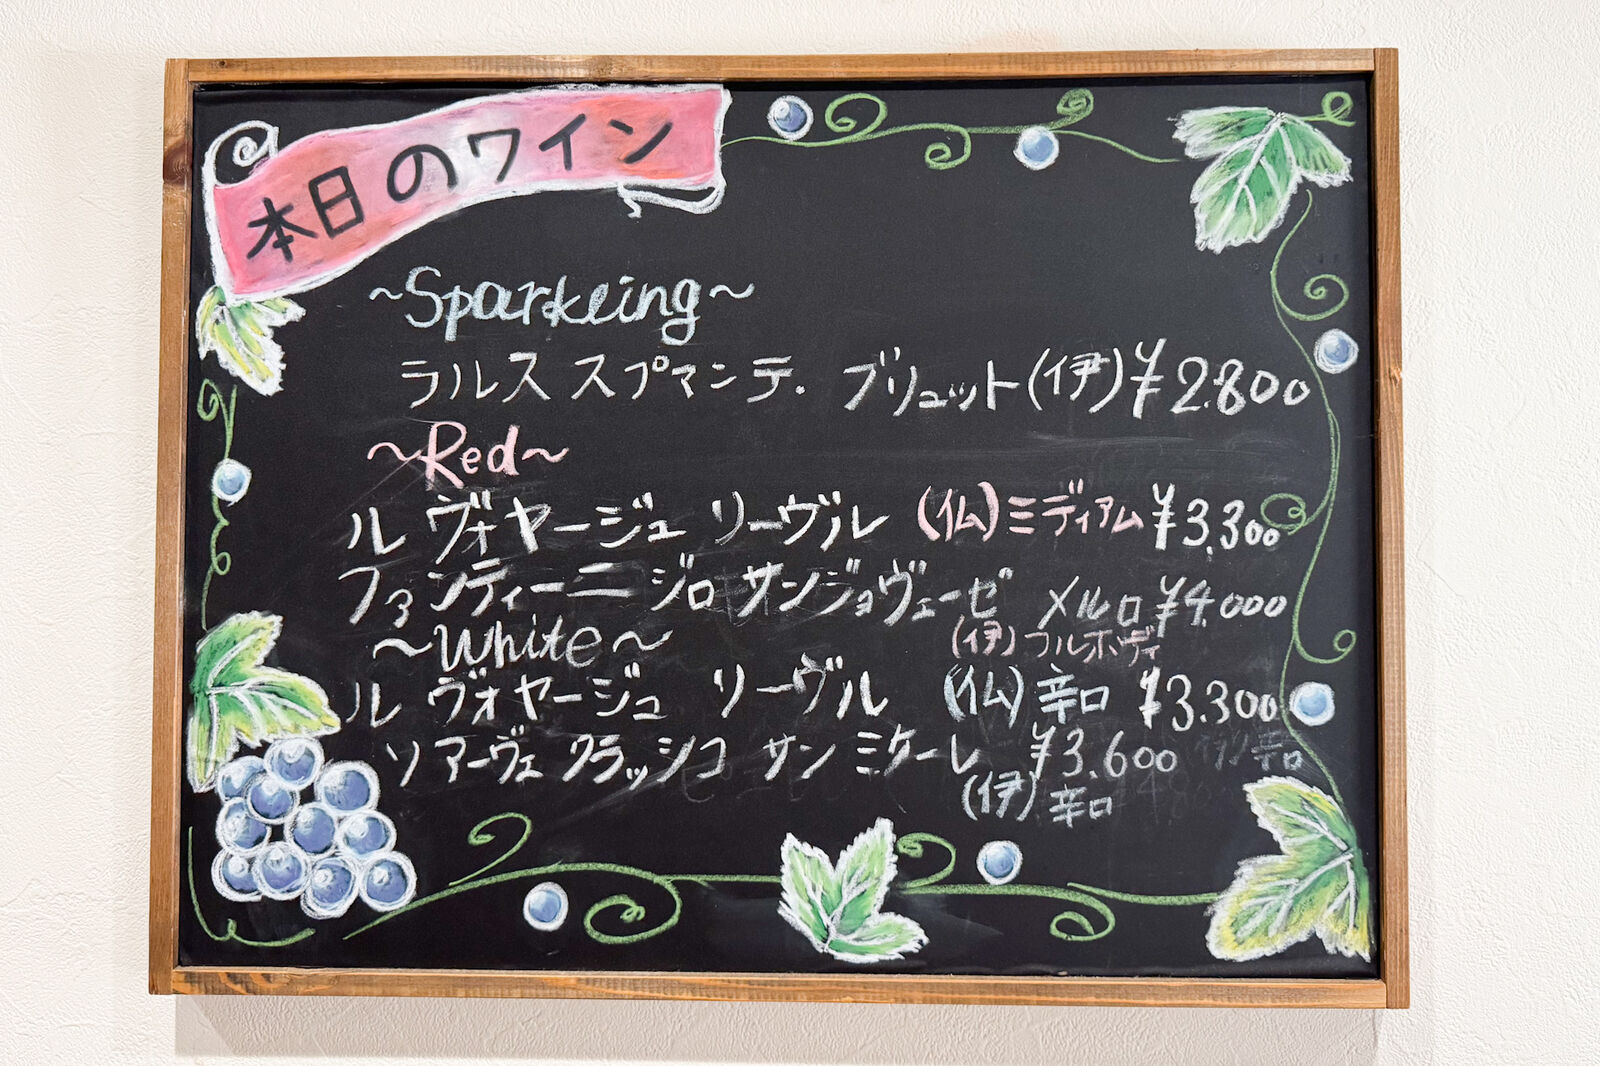 本日のワイン
~Sparkeing~
ラルス スプマンテ. ブリュット(伊)¥2.800
~Red~
ル ヴォヤージュ リーヴル (仏)ミディアム ¥3.300
ファンティーニ ジロ サンジョヴェーゼ メルロ ¥4.000
(伊)フルボディ
~White~
ル ヴォヤージュ リーヴル (仏)辛口 ¥3.300
ソアーヴェ クラッシコ サン ミケーレ ¥3.600
(伊)辛口